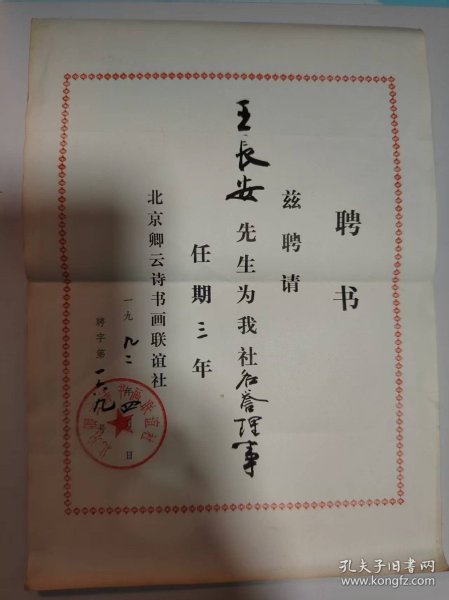 聘书
兹聘请
王长安先生为我社名誉理事
任期三年
北京卿云诗书画联谊社
一九九二年四月 日
聘字第一六九号
孔夫子旧书网
www.kongfz.com